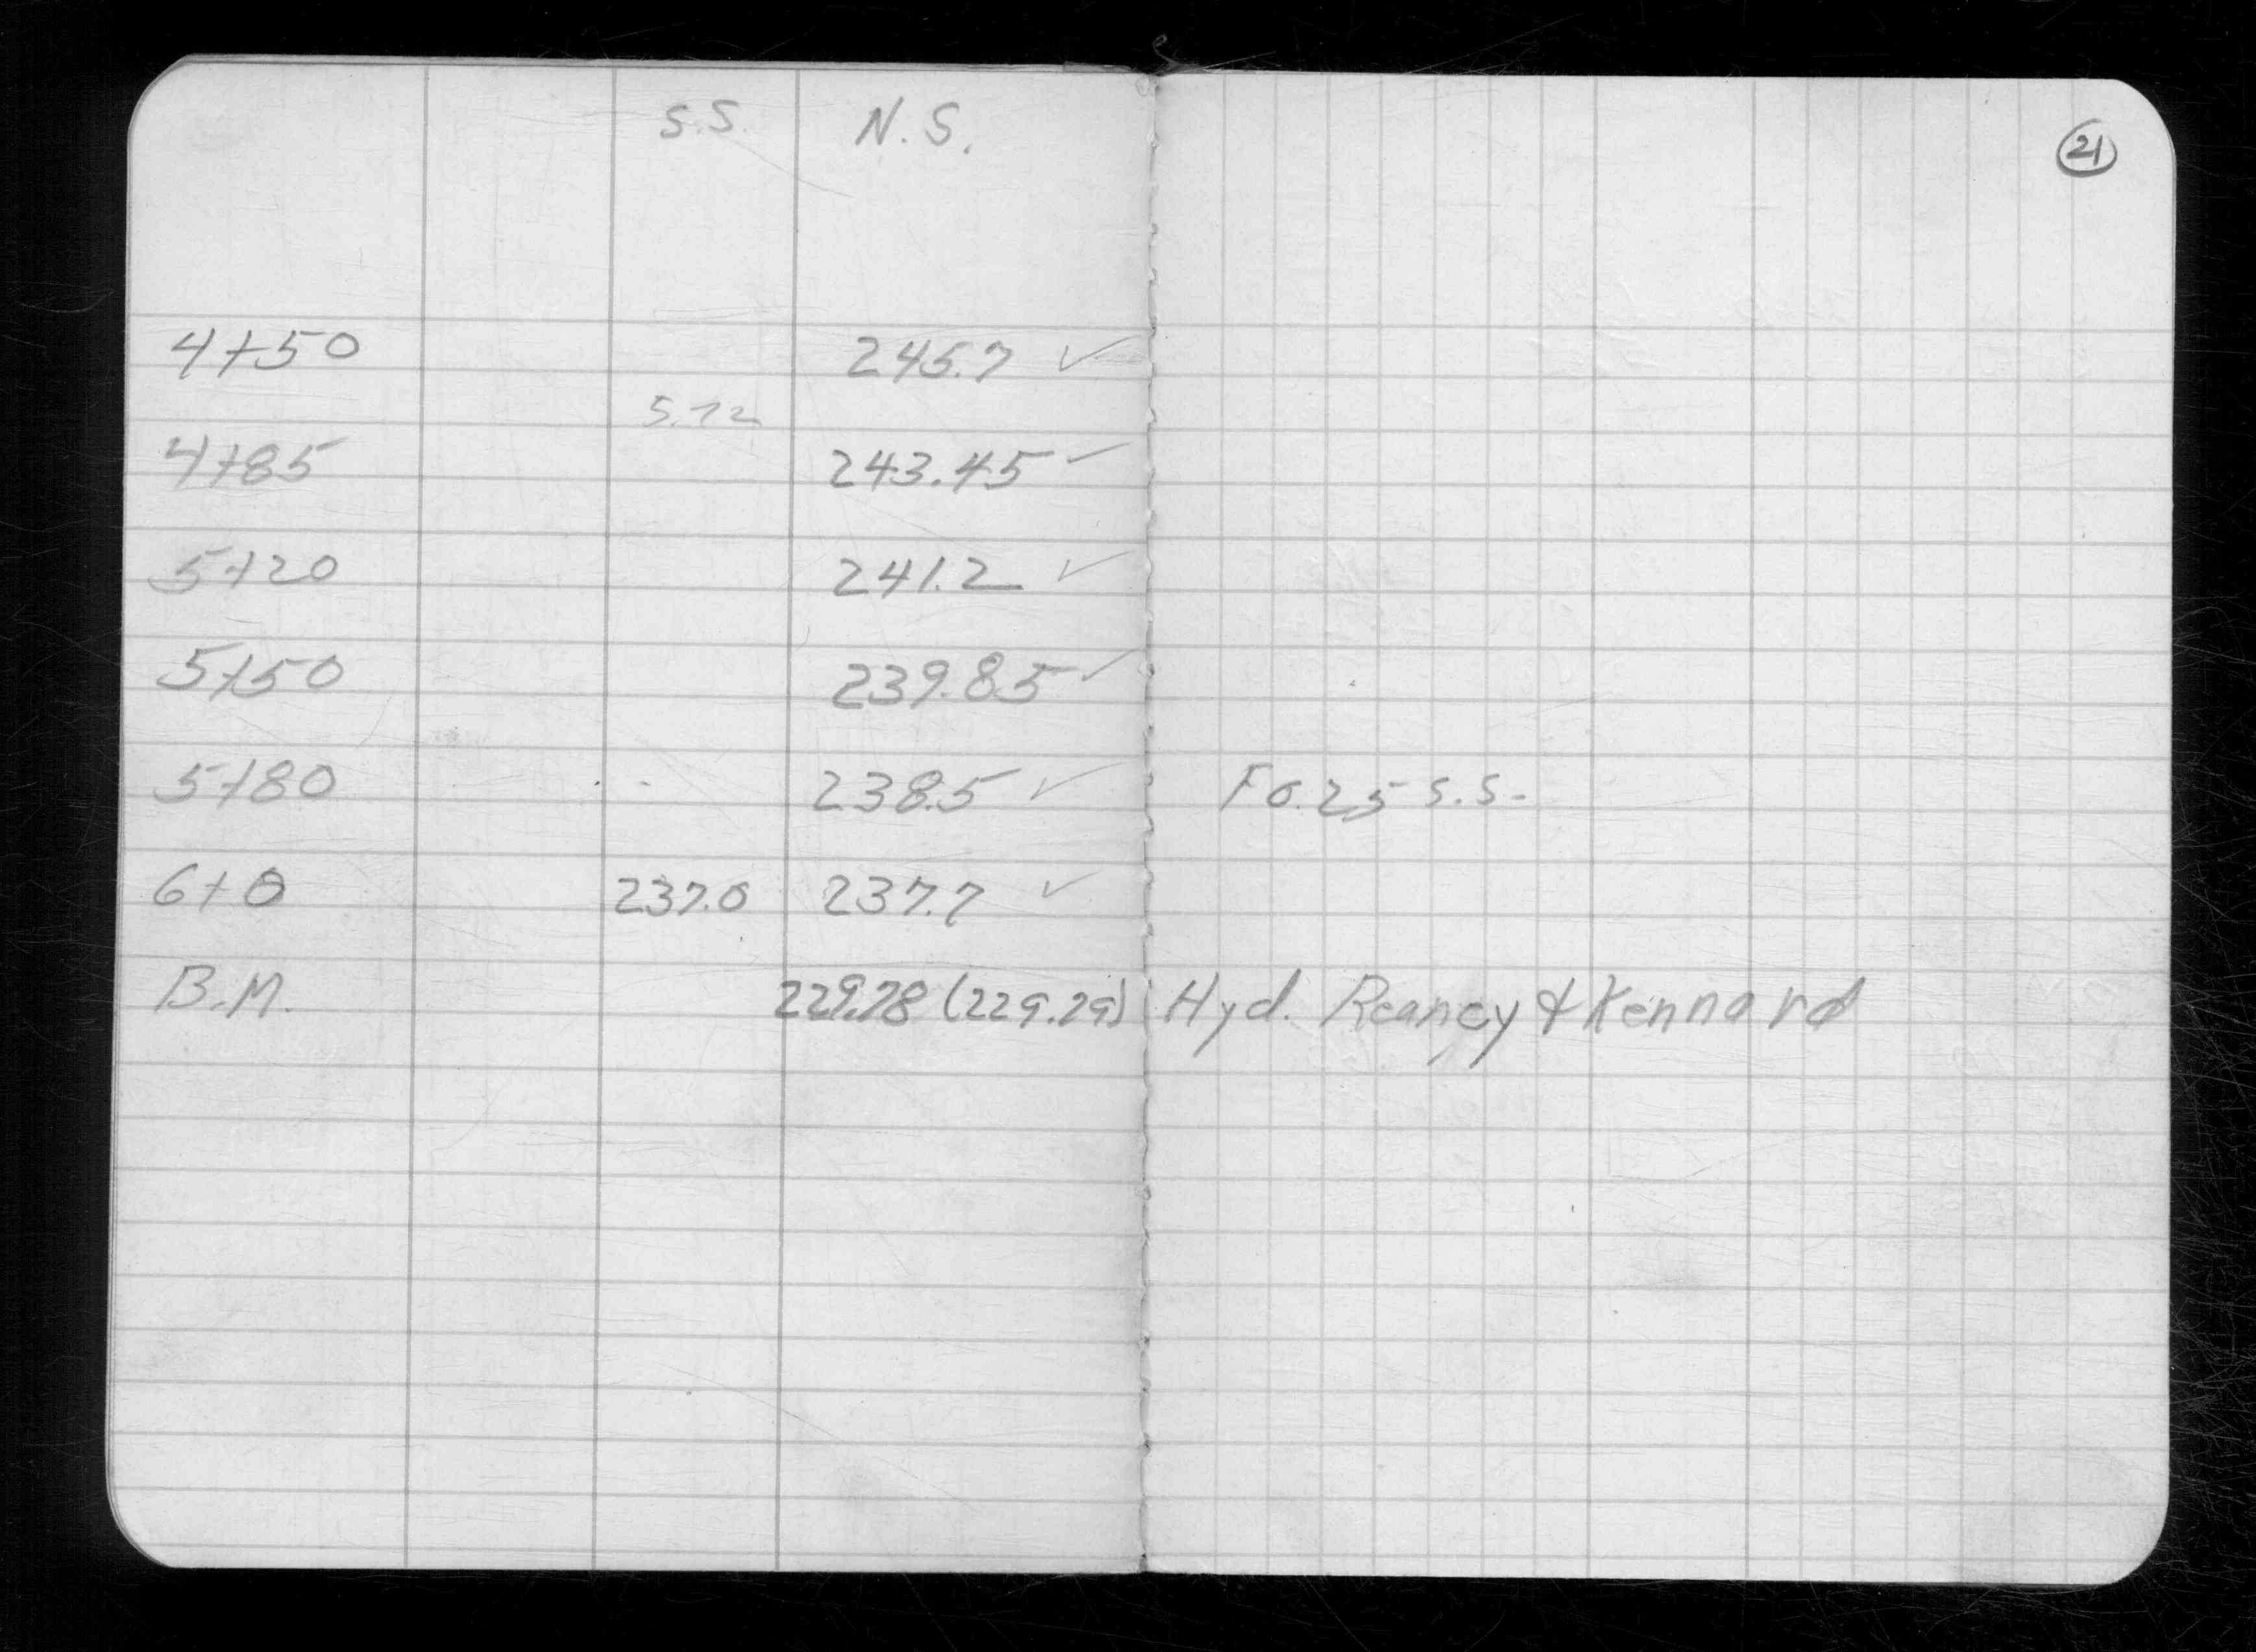 S.S. N.S.
21
4+50 245.7 ✓
5.72
4+85 243.45 ✓
5+20 241.2 ✓
5+50 239.85 ✓
5+80 238.5 ✓ F 0.25 S.S.
6+0 237.0 237.7 ✓
B.M. 229.28 (229.29) Hyd. Reaney & Kennard